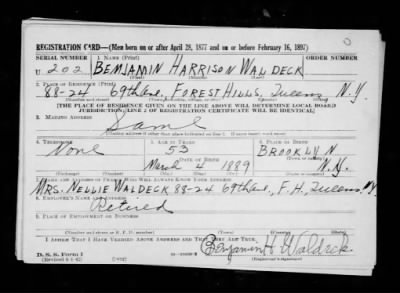 REGISTRATION CARD—(Men born on or after April 28, 1877 and on or before February 16, 1897)
SERIAL NUMBER 1. NAME (Print) ORDER NUMBER
U 202 BENJAMIN HARRISON WALDECK
2. PLACE OF RESIDENCE (Print)
88-24 69th Ave, FOREST HILLS, Queens N.Y.
[THE PLACE OF RESIDENCE GIVEN ON THE LINE ABOVE WILL DETERMINE LOCAL BOARD
JURISDICTION; LINE 2 OF REGISTRATION CERTIFICATE WILL BE IDENTICAL]
3. MAILING ADDRESS
Same
[Mailing address if other than place indicated on line 2. If same insert word same]
4. TELEPHONE 5. AGE IN YEARS 6. PLACE OF BIRTH
None 53 BROOKLYN
DATE OF BIRTH
March 4 1889 N.Y.
7. NAME AND ADDRESS OF PERSON WHO WILL ALWAYS KNOW YOUR ADDRESS
MRS. NELLIE WALDECK 88-24 69th Ave., F.H., Queens, N.Y.
8. EMPLOYER'S NAME AND ADDRESS
Retired
9. PLACE OF EMPLOYMENT OR BUSINESS
I AFFIRM THAT I HAVE VERIFIED ABOVE ANSWERS AND THAT THEY ARE TRUE.
D. S. S. Form 1 Benjamin H. Waldeck
(Registrant's signature)